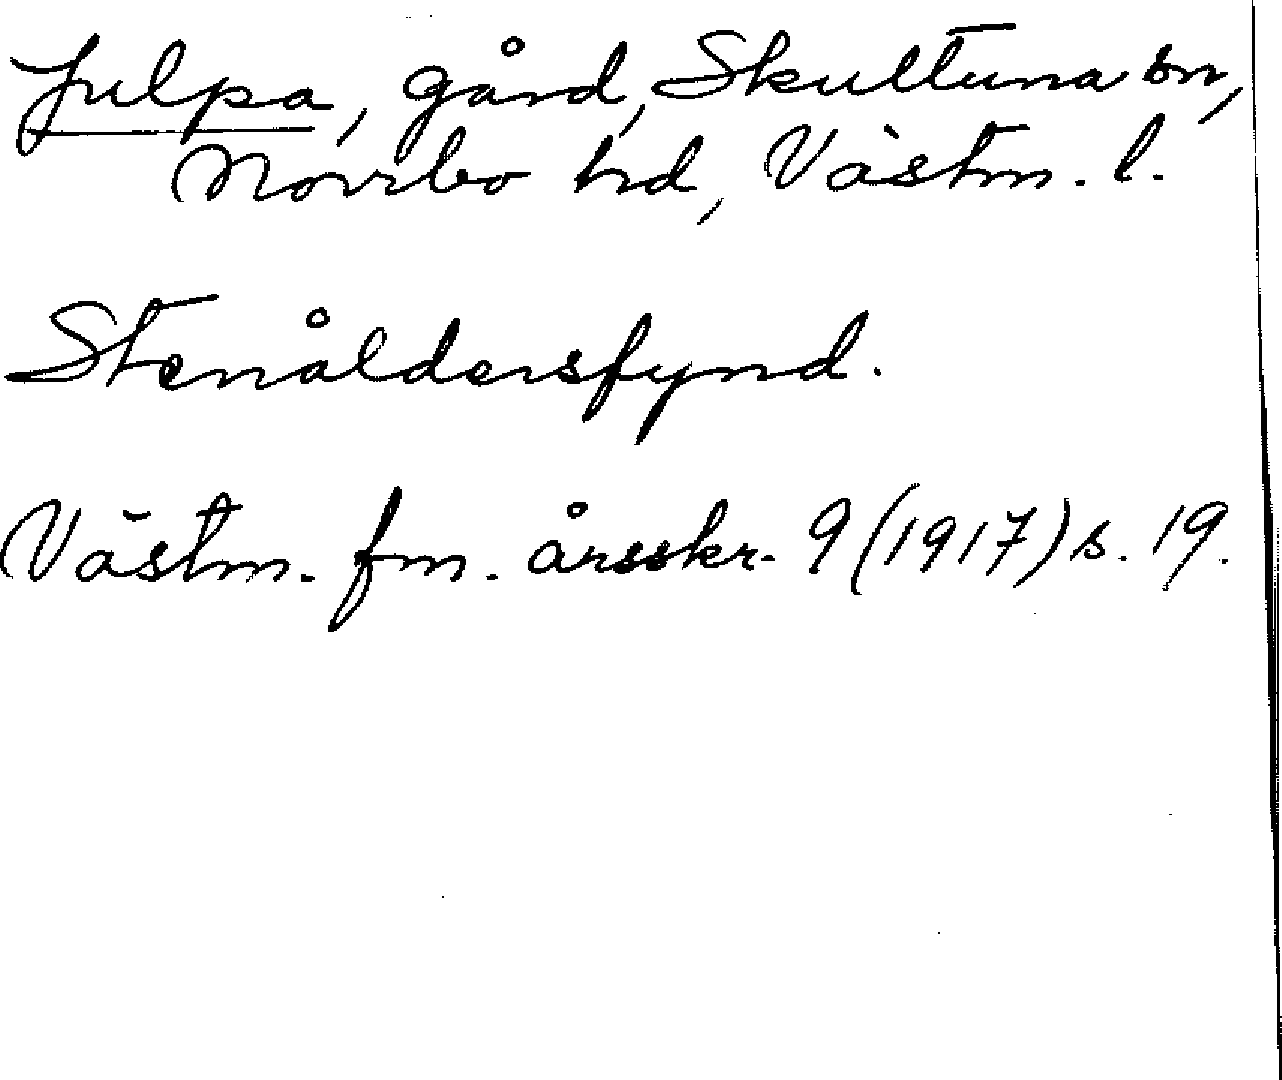 Julpa, gård, Skultuna sn,
Norrbo hd, Västm. l.
Stenåldersfynd.
Västm. fm. årsskr. 9 (1917) s. 19.